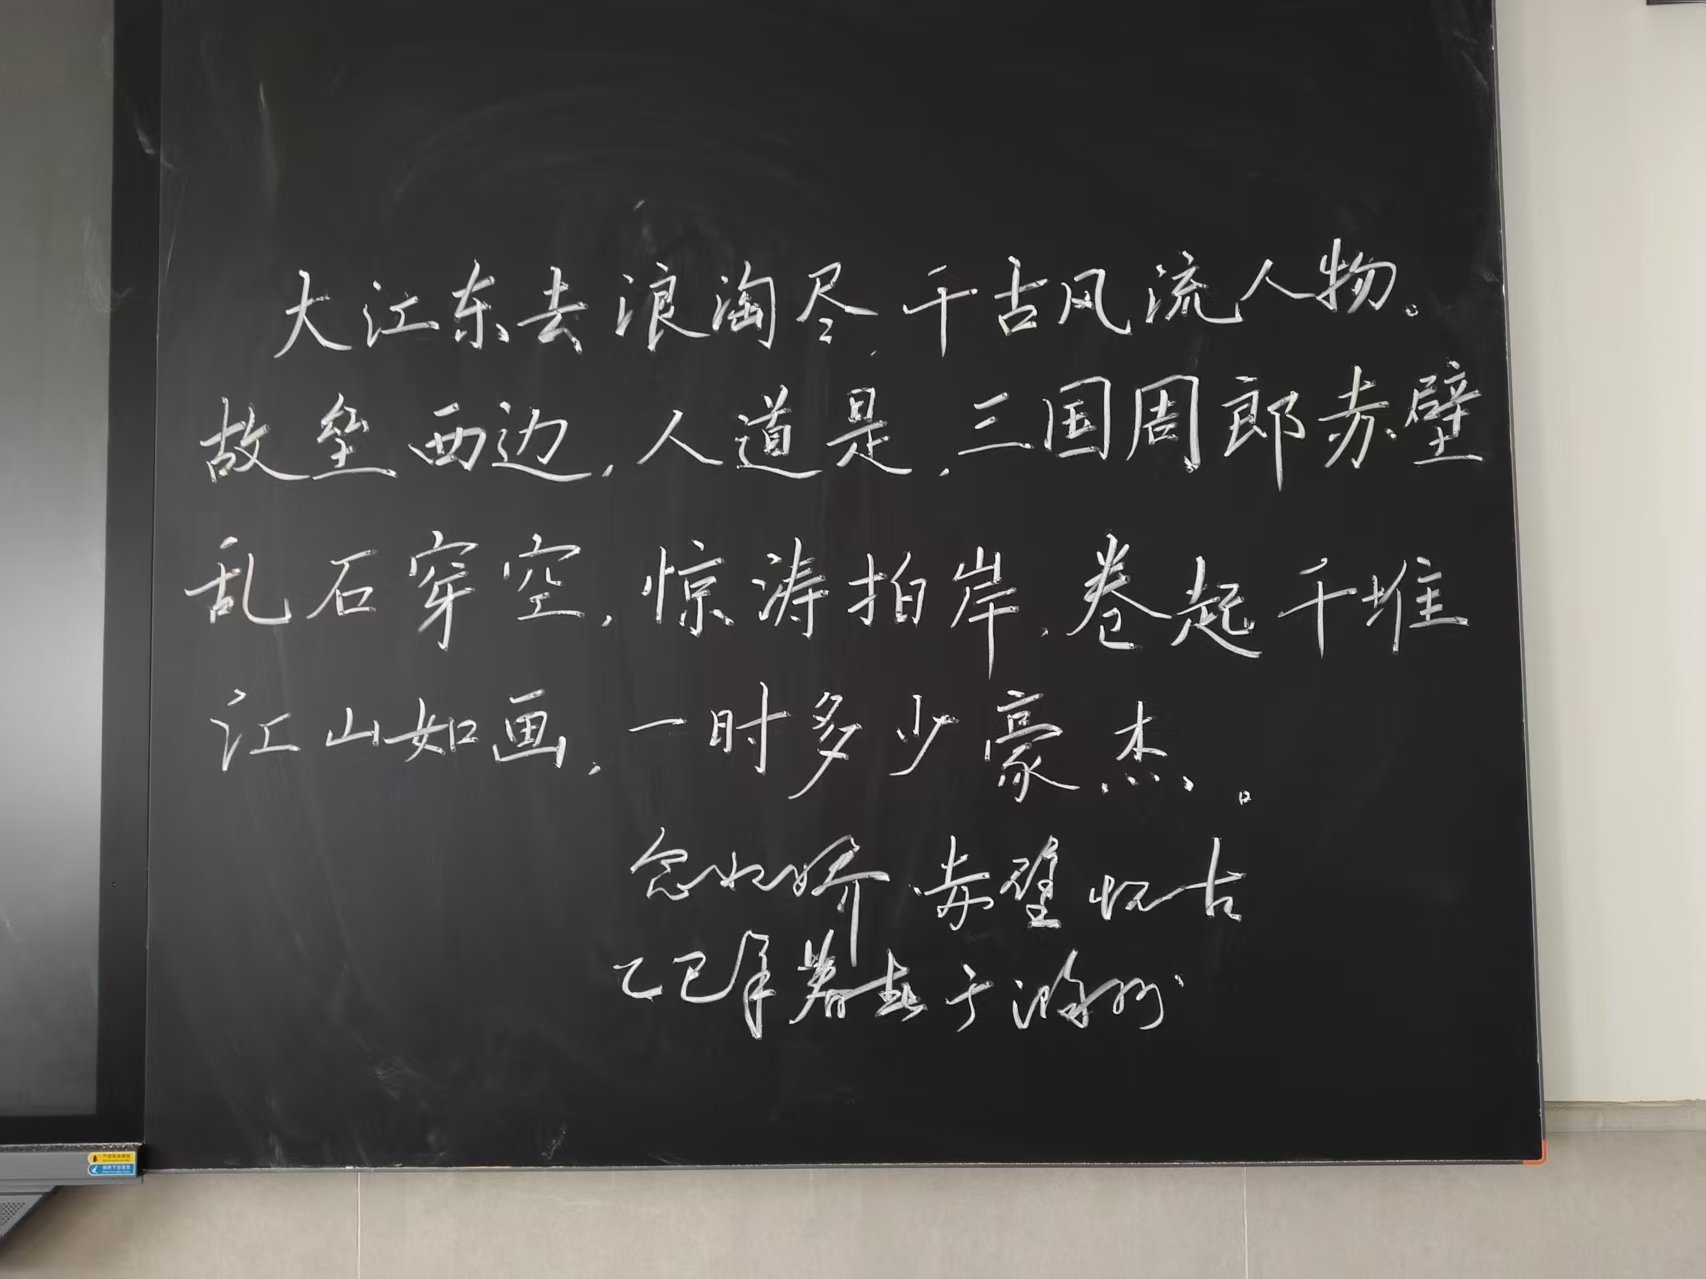 大江东去浪淘尽,千古风流人物。
故垒西边,人道是,三国周郎赤壁
乱石穿空,惊涛拍岸,卷起千堆
江山如画,一时多少豪杰。
念奴娇 赤壁怀古
乙巳年春 于滁州